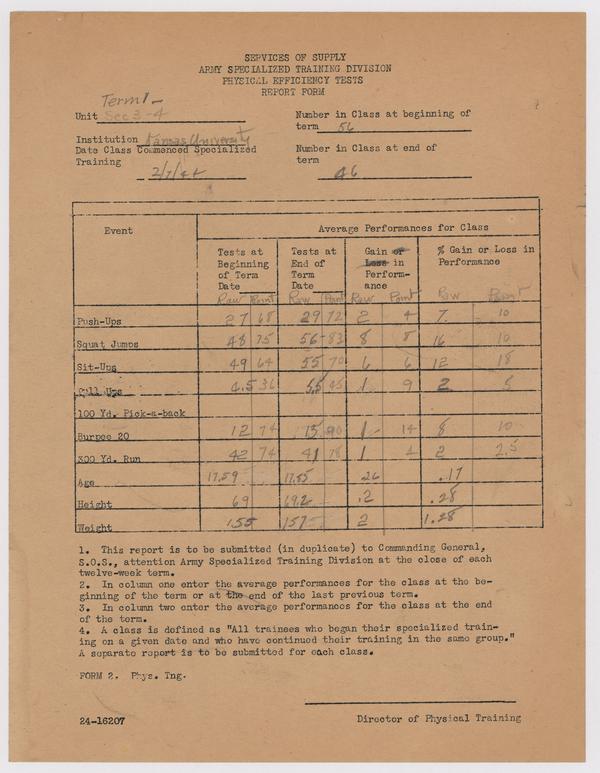 SERVICES OF SUPPLY
ARMY SPECIALIZED TRAINING DIVISION
PHYSICAL EFFICIENCY TESTS
REPORT FORM
Term 1 -
Unit Sec 3-4
Number in Class at beginning of
term 56
Institution Kansas University
Date Class Commenced Specialized
Training 2/7/44
Number in Class at end of
term 46
Event
Average Performances for Class
Tests at Beginning of Term Date
Tests at End of Term Date
Gain or Loss in Performance
% Gain or Loss in Performance
Raw Point Raw Point Raw Point Raw Point
Push-Ups 27 68 29 72 2 4 7 10
Squat Jumps 48 75 56 83 8 8 16 10
Sit-Ups 49 64 55 70 6 6 12 18
Pull Ups 4.5 36 5.5 45 1 9 2 5
100 Yd. Pick-a-back
Burpee 20 12 74 13 90 1 14 8 10
300 Yd. Run 42 74 41 78 1 4 2 2.5
Age 17.59 17.85 26 .17
Height 69 69.2 .2 .28
Weight 155 157 2 1.28
1. This report is to be submitted (in duplicate) to Commanding General,
S.O.S., attention Army Specialized Training Division at the close of each
twelve-week term.
2. In column one enter the average performances for the class at the be-
ginning of the term or at the end of the last previous term.
3. In column two enter the average performances for the class at the end
of the term.
4. A class is defined as "All trainees who began their specialized train-
ing on a given date and who have continued their training in the same group."
A separate report is to be submitted for each class.
FORM 2. Phys. Tng.
24-16207
Director of Physical Training